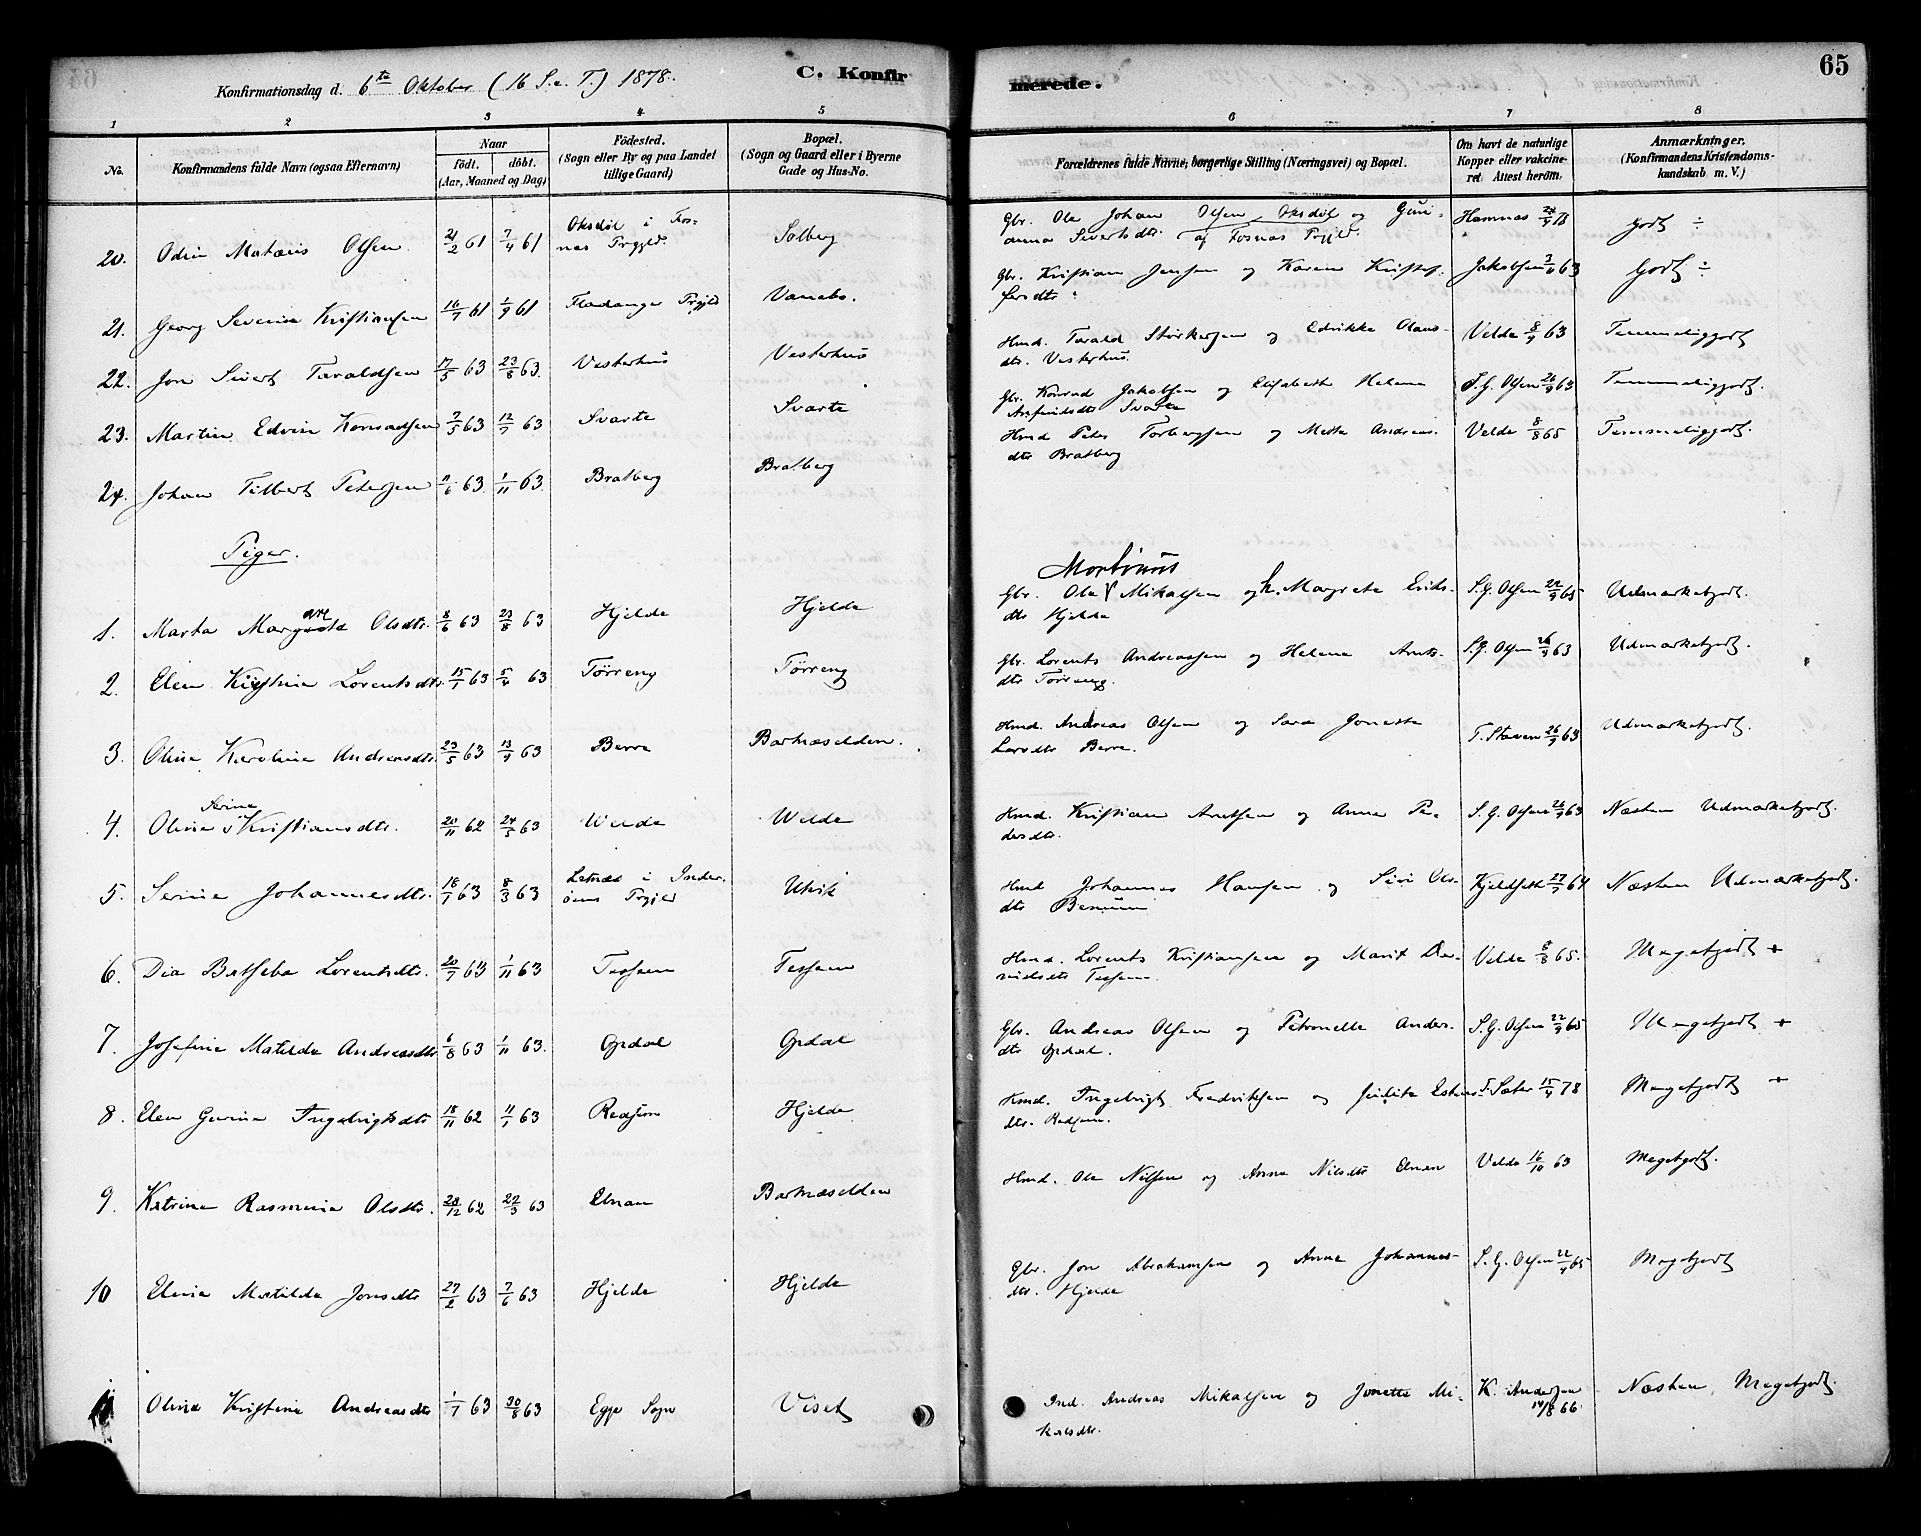 Konfirmationsdag d. 6te Oktober (16 S. e. T.) 1878. C. Konfirmerede. 65
1 2 3 4 5 6 7 8
No. Konfirmandens fulde Navn (ogsaa Efternavn) Naar födt. döbt. (Aar, Maaned og Dag) Födested. (Sogn eller By og paa Landet tillige Gaard) Bopæl. (Sogn og Gaard eller i Byerne Gade og Hus-No. Forældrenes fulde Navne, borgerlige Stilling (Næringsvei) og Bopæl. Om havt de naturlige Kopper eller vakcineret. Attest herom. Anmærkninger. (Konfirmandens Kristendomskundskab m. V.)
20. Odin Matæus Olsen. 21/2 61 7/4 61 Oksdöl i Fosnas Prgjld. Solberg Gbr. Ole Johan Olsen Oksdöl og Gurianna Sivertsdtr. af Fosnas Prgjld. Hamnas 78 godt ÷
21. Georg Severin Kristiansen 16/7 61 1/9 61 Fladanger Prgjld Vanebo. Gbr. Kristian Jensen og Karen Kristofersdtr. Jakobsen 63 Godt ÷
22. Jon Sivert Taraldsen 17/5 63 23/8 63. Vesterhus Vesterhus Hmd. Tarald Storkersen og Edrikke Olausdtr. Vesterhus. Velde 8/9 63 Temmeliggodt
23. Martin Edvin Konradsen 7/5 63 12/7 63 Svarte Svarte Gbr. Konrad Jakobsen og Elisabeth Helena Arnfindsdtr Svarte S. G. Olsen 26/9 63 Temmeliggodt.
24. Johan Tilbert Petersen 11/6 63. 1/11 63. Bratberg Bratberg Hmd Peter Torbergsen og Mette Andreasdtr Bratberg Velde 8/8 65 Temmeliggodt.
Piger.
1. Marta Margrete Olsdtr. 8/6 63 23/8 63 Hjelde Hjelde Gbr. Ole Mortinus Mikalsen og h. Margrete Eriksdtr Hjelde S. G. Olsen 22/9 65 Udmærketgodt.
2. Elen Kirstine Lorentsdtr. 15/1 63 5/4 63 Tørreng Tørreng Gbr. Lorents Andreassen og Helena Arntsdtr Tørreng. S. G. Olsen 26/9 63 Udmærketgodt.
3. Oline Karoline Andreasdtr. 23/5 63 13/9 63 Berre Bartnæselden. Hmd. Andreas Olsen og Sara Jonetta Larsdtr Berre. T. Staven 26/9 63 Udmærketgodt.
4. Oline Serine Kristiansdtr. 20/11 62 24/5 63 Welde Welde Hmd. Kristian Arntsen og Anne Pedersdtr. S. G. Olsen 26/9 63 Næsten Udmærketgodt.
5. Serine Johannesdtr. 18/1 63 8/3 63 i Inderöens Prgjld Utvik Hmd Johannes Hansen og Siri Olsdtr 27/9 64 Næsten Udmærketgodt.
6. Dia Batseba Lorentsdtr. 20/7 63 1/11 63 Tessem Tessem Hmd. Lorents Kristiansen og Marit Davidsdtr Tessem. Velde 8/8 65. Megetgodt +
7. Josefine Matilda Andreasdtr 6/8 63 1/11 63. Opdal Opdal Gbr. Andreas Olsen og Petronelle Andersdtr Opdal. S. G. Olsen 22/9 65 Megetgodt +
8. Elen Gurine Ingebrigtsdtr 18/11 62 11/1 63 Redsem Hjelde Hmd. Ingebrigt Fredriksen og Judite Estensdtr. Redsem. T. Sæter 15/9 78 Megetgodt +
9. Katrine Rasmine Olsdtr. 28/12 62 22/3 63 Elnan Bartnæselden Hmd. Ole Nilsen og Anna Nilsdtr Elnan Velde 16/10 63 Megetgodt.
10 Elena Matilda Jonsdtr 27/2 63 7/6 63 Hjelde Hjelde Gbr. Jon Abrahamsen og Anna Johannesdtr. Hjelde S. G. Olsen 22/9 65 Megetgodt
11 Oline Kristine Andreasdtr 1/7 63 30/8 63 Egge Sogn Viset Ind. Andreas Mikalsen og Jonetta Mikalsdtr. K. Andersen 14/8 66 Næsten Megetgodt.